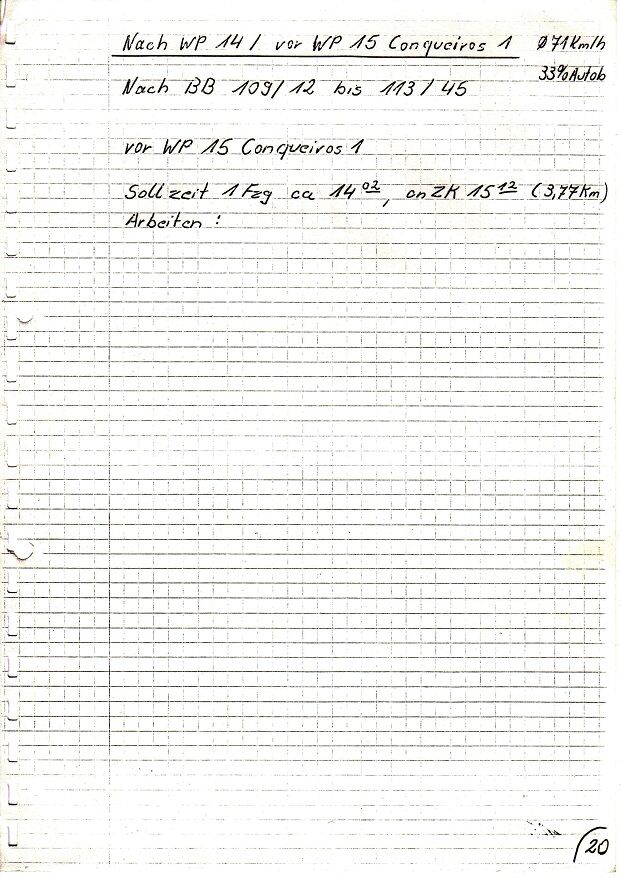 Nach WP 14 / vor WP 15 Conqueiros 1 Ø 71 Km/h
33% Autob
Nach BB 109/12 bis 113/45
vor WP 15 Conqueiros 1
Sollzeit 1 Fzg ca 14 02, an ZK 15 12 (3,77 Km)
Arbeiten :
20